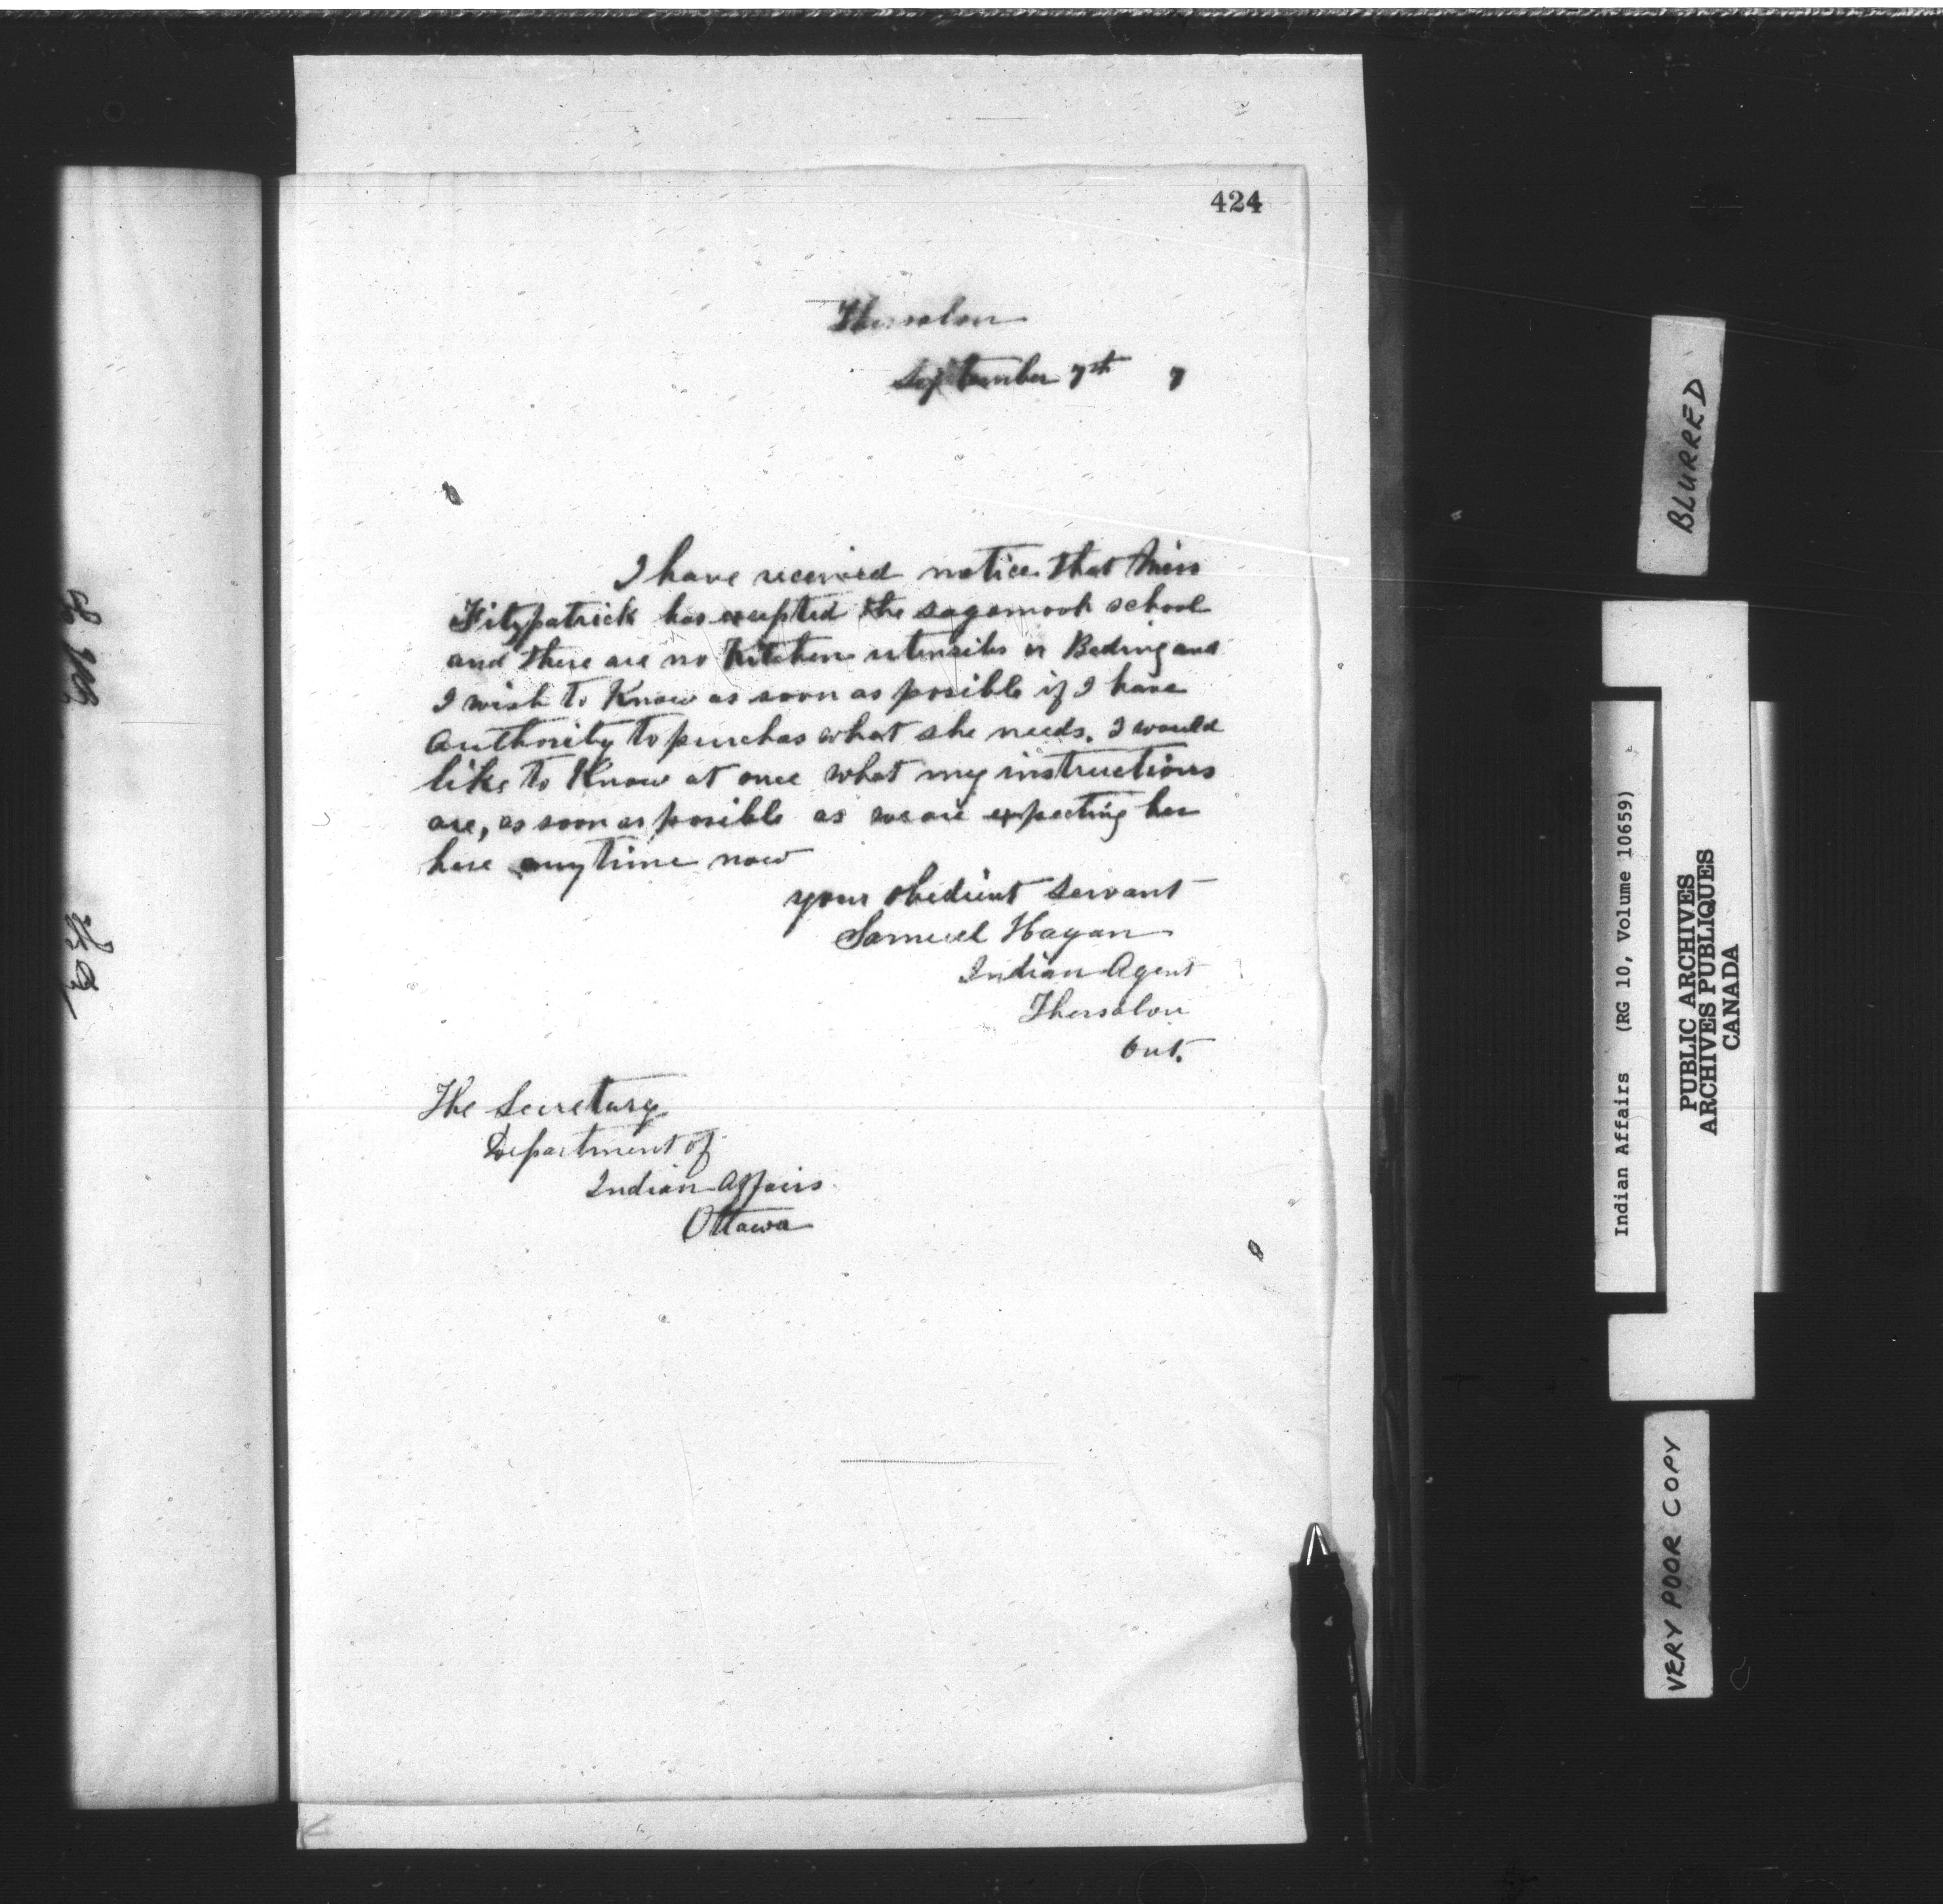 424
Thessalon
September 7th 7
I have received notice that Miss
Fitzpatrick has excepted the sagamook school
and there are no Kitchen utensiles or Beding and
I wish to Know as soon as posible if I have
Authority to purchas what she needs. I would
like to Know at once what my instructions
are, as soon as posible as we are expecting her
here anytime now
your obedient servant
Samuel Hagan
Indian Agent
Thessalon
Ont.
The Secretary
Department of
Indian Affairs
Ottawa
BLURRED
Indian Affairs (RG 10, Volume 10659)
PUBLIC ARCHIVES
ARCHIVES PUBLIQUES
CANADA
VERY POOR COPY